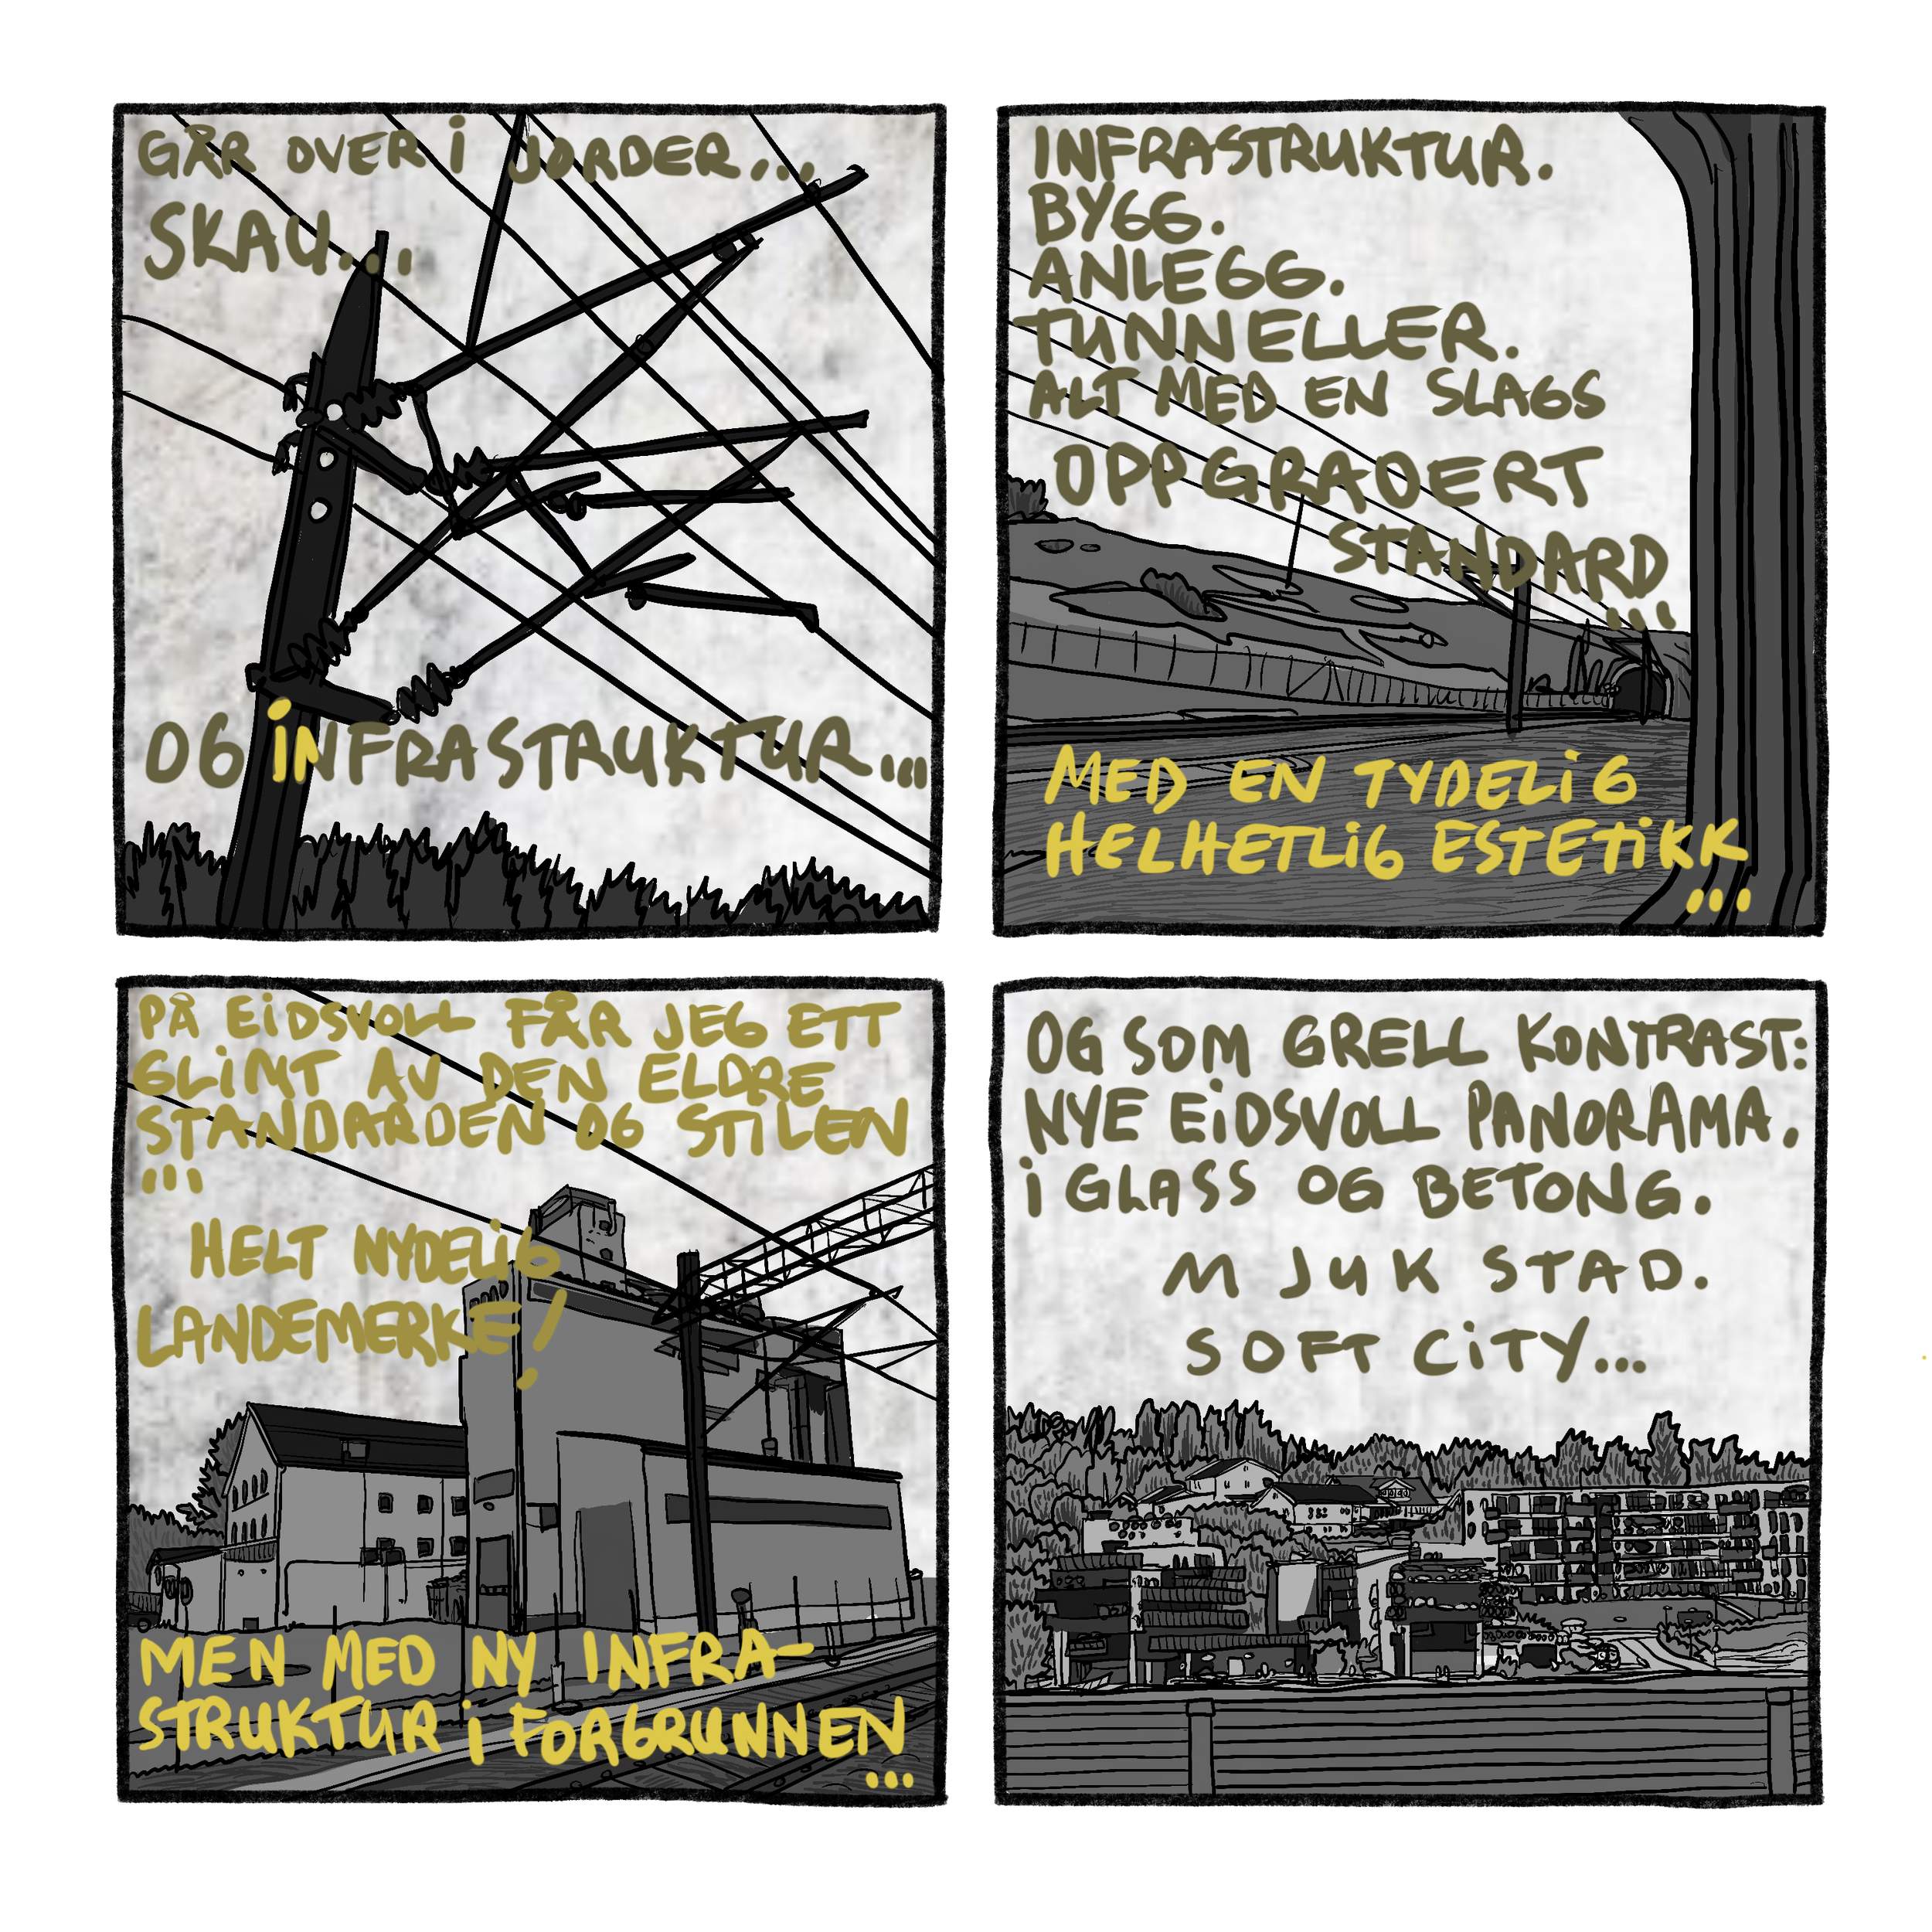 GÅR OVER i JORDER...
SKAU...
OG iNFRASTRUKTUR...
INFRASTRUKTUR.
BYGG.
ANLEGG.
TUNNELLER.
ALT MED EN SLAGS
OPPGRADERT
STANDARD
...
MED EN TYDELiG
HELHETLiG ESTETiKK
...
PÅ EiDSVOLL FÅR JEG ETT
GLiMT AV DEN ELDRE
STANDARDEN OG STiLEN
...
HELT NYDELiG
LANDEMERKE!
MEN MED NY INFRA-
STRUKTUR i FORGRUNNEN
...
OG SOM GRELL KONTRAST:
NYE EiDSVOLL PANORAMA.
i GLASS OG BETONG.
MJUK STAD.
SOFT CiTY...